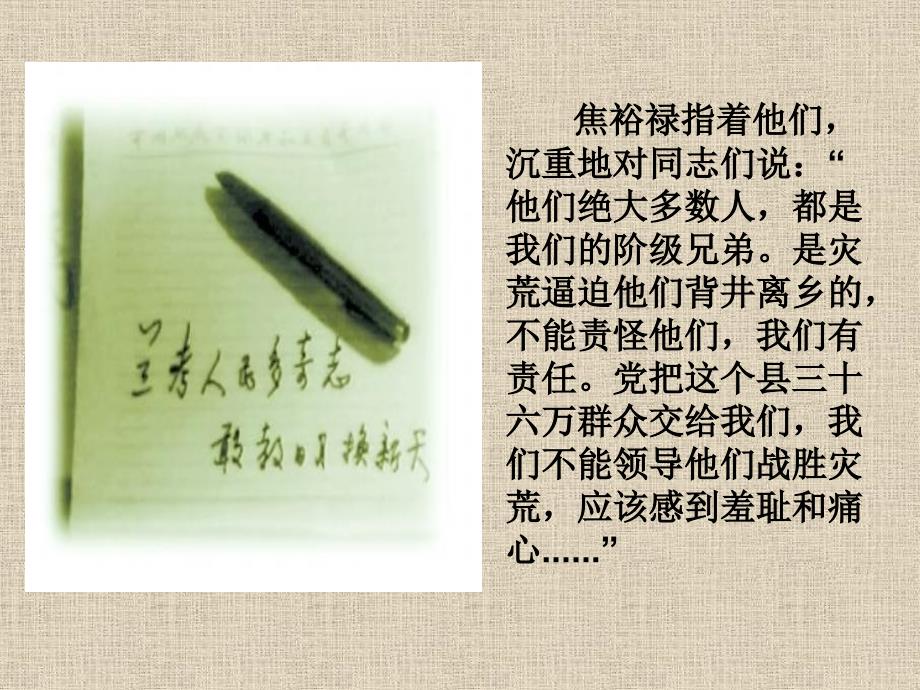 兰考人民多奇志
敢教日月换新天
焦裕禄指着他们，
沉重地对同志们说：“
他们绝大多数人，都是
我们的阶级兄弟。是灾
荒逼迫他们背井离乡的，
不能责怪他们，我们有
责任。党把这个县三十
六万群众交给我们，我
们不能领导他们战胜灾
荒，应该感到羞耻和痛
心......”